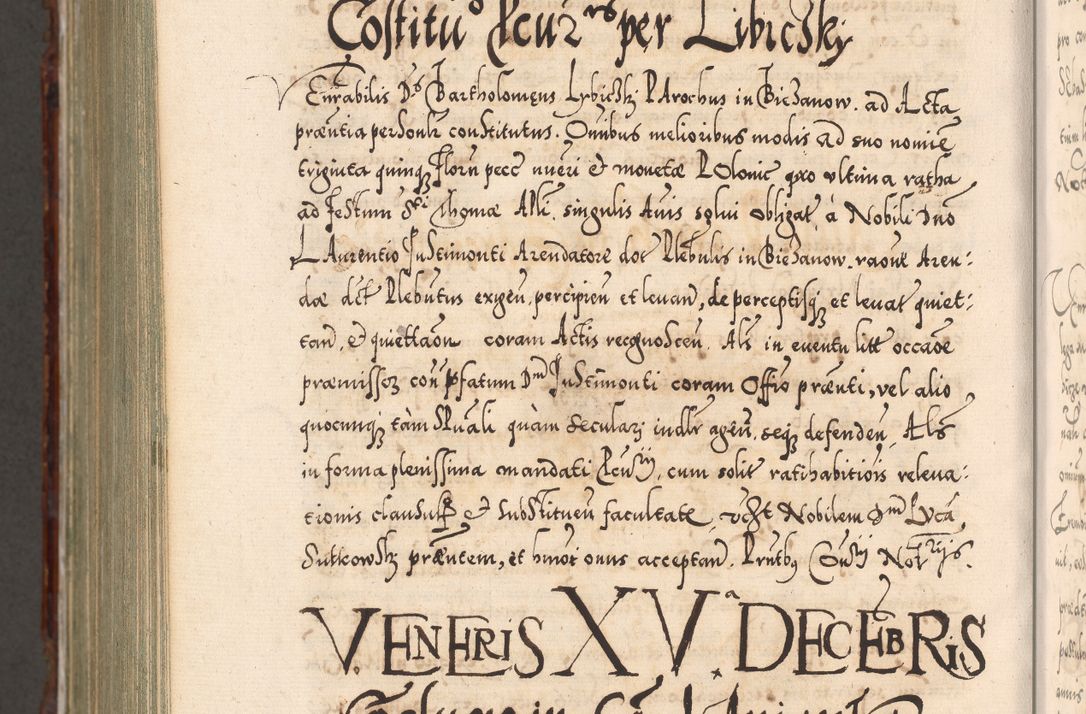 Costitu⁰ Pcur̃ʳⁱˢ per Libiczky
Venerabilis Dˢ Bartholomęus Lybiczky PArochus in Biezanow. ad Acta
præntia personlr constitutus. Omibus melioribus modis ad suo nomie
triginta quinq₃ florn pecc nueri et monetæ POlonic pro ultima ratha
ad festum Sti Thomæ Apli. singulis Anis solui obligat. à Nobili Dno
LAurentio Justimonti Arendatore dot Plebulis in Biezanow. raone Aren:
dæ dct Plebutus exigen, percipien et leuand, de perceptisq₃ et leuat quiet:
tand, et quiettaon coram Actis recgnoscen. Als in euentu litt occaoe
præmissoz con pfatum Dnm Justimonti coram Offio prænti, vel alio
quocunq₃ tàm SPuali quàm seculari indllr agen. seq₃ defenden, Als
in forma plenissima mandati Pcurij, cum solit ratihabitiois releua:
tionis clausul et substituen facultate, vczt Nobilem Dnm Lvca
Sulkowsky præntem, et hmoi onus acceptan. Prntby Cursij Notrijs.
VENERIS XVᵃ DECEMBRIS